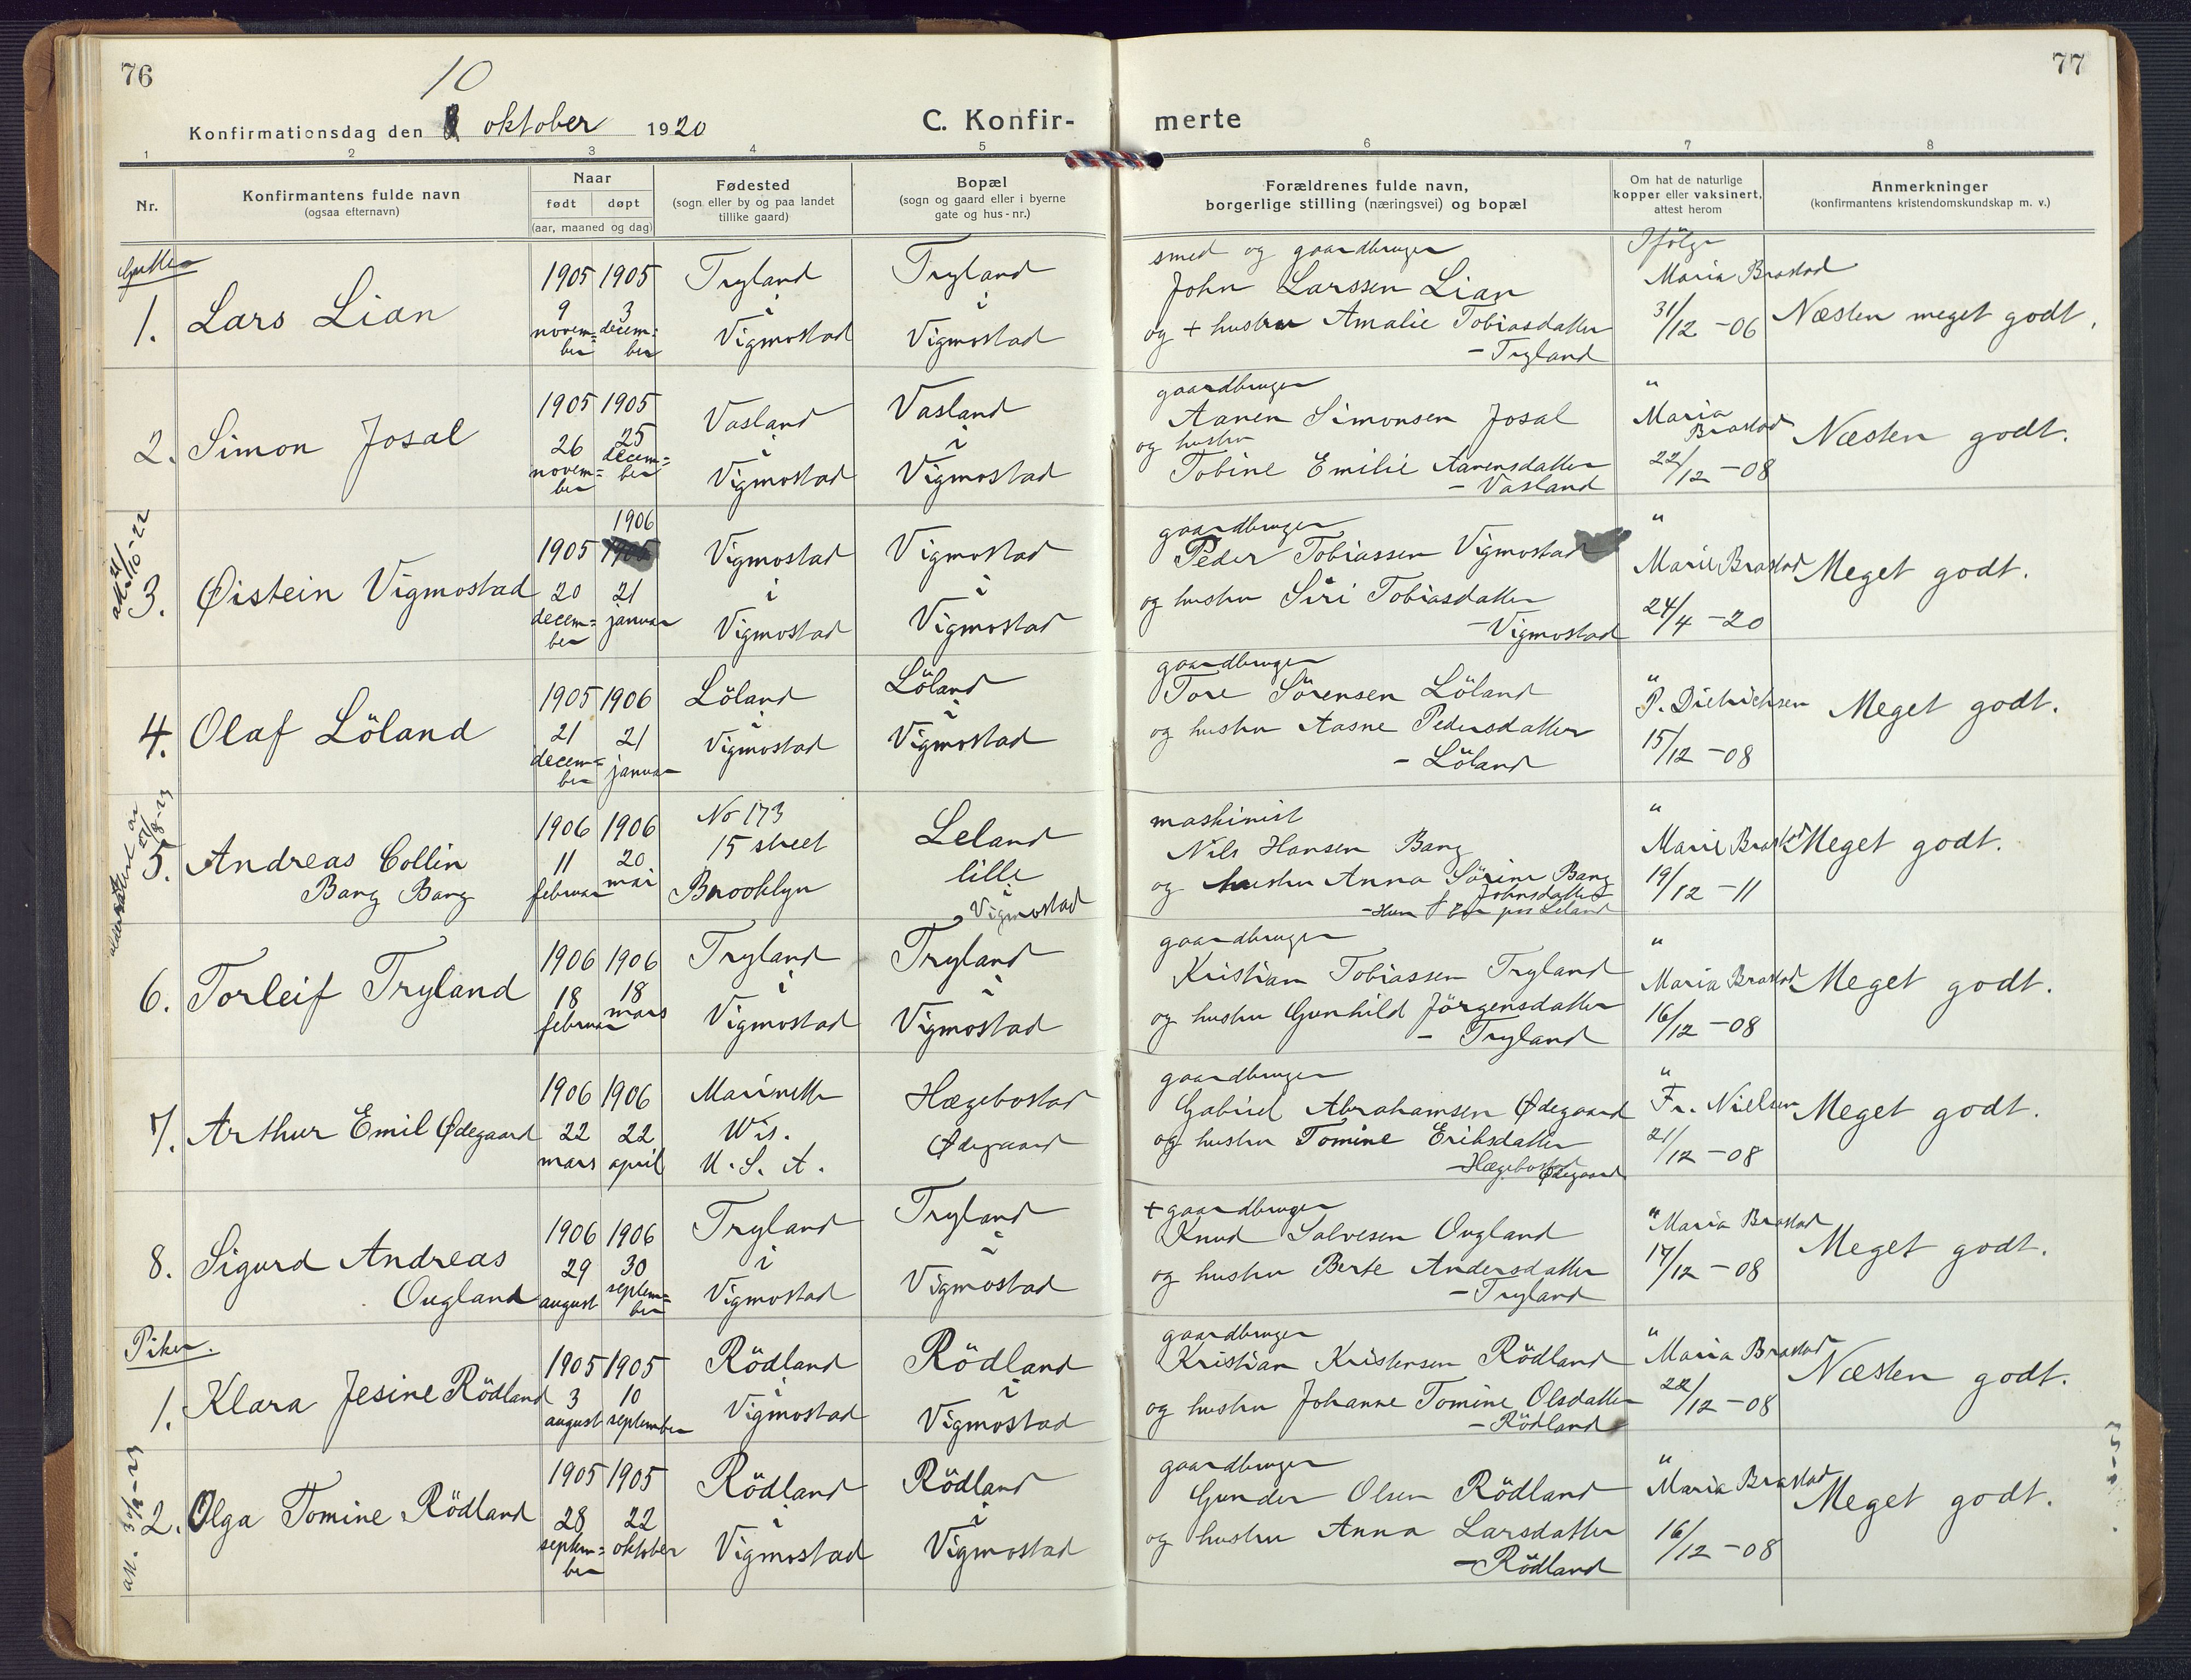 76
77
10
Konfirmationsdag den oktober 1920
C. Konfir-
merte
1 2 3 4 5 6 7 8
Nr.
Konfirmantens fulde navn
(ogsaa efternavn)
Naar
født døpt
(aar, maaned og dag)
Fødested
(sogn eller by og paa landet
tillike gaard)
Bopæl
(sogn og gaard eller i byerne
gate og hus-nr.)
Forældrenes fulde navn,
borgerlige stilling (næringsvei) og bopæl
Om hat de naturlige
kopper eller vaksinert,
attest herom
Anmerkninger
(konfirmantens kristendomskundskap m. v.)
Gutter
1. Lars Lian
1905 9 novem=ber
1905 3 decem=ber
Tryland i Vigmostad
Tryland i Vigmostad
smed og gaardbruger
John Larssen Lian
og + hustru Amalie Tobiasdatter
- Tryland
Ifölge
Maria Brastad
31/12 - 06
Næsten meget godt.
2. Simon Josal
1905 26 novem=ber
1905 25 decem=ber
Vasland i Vigmostad
Vasland i Vigmostad
gaardbruger
Aanen Simonsen Josal
og hustru
Tobine Emilie Aanensdatter
- Vasland
"
Maria
Brastad
22/12 - 08
Næsten godt.
att. 21/10-22
3. Øistein Vigmostad
1905 20 decem=ber
1906 21 januar
Vigmostad i Vigmostad
Vigmostad i Vigmostad
gaardbruger
Peder Tobiassen Vigmostad
og hustru Siri Tobiasdatter
- Vigmostad
"
Marie Brastad
24/4 - 20
Meget godt.
4. Olaf Löland
1905 21 decem=ber
1906 21 januar
Löland i Vigmostad
Löland i Vigmostad
gaardbruger
Tore Sörensen Löland
og hustru Aasne Pedersdatter
- Löland
"
P. Dietrichsen
15/12 - 08
Meget godt.
5. Andreas Collin
Bang Bang
1906 11 februar
1906 20 mai
No 173
15 street
Brooklyn
Leland
lille
i
Vigmostad
maskinist
Nils Hansen Bang
og hustru Anna Sörine Bang
Johnsdatter
Leland
"
Marie Brastad
19/12 - 11
Meget godt.
6. Torleif Tryland
1906 18 februar
1906 18 mars
Tryland i Vigmostad
Tryland i Vigmostad
gaardbruger
Kristian Tobiassen Tryland
og hustru Gunhild Jörgensdatter
- Tryland
"
Maria Brastad
16/12 - 08
Meget godt.
7. Arthur Emil Ødegaard
1906 22 mars
1906 22 april
Marinette
Wis.
U.S.A.
Hægebostad
Ødegaard
gaardbruger
Gabriel Abrahamsen Ødegaard
og hustru Tomine Eriksdatter
- Hægebostad
Ødegaard
"
Fr. Nielsen
21/12 - 08
Meget godt.
8. Sigurd Andreas
Ougland
1906 29 august
1906 30 septem=ber
Tryland i Vigmostad
Tryland i Vigmostad
+ gaardbruger
Knud Salvesen Ougland
og hustru Berte Andersdatter
- Tryland
" Maria Brastad
17/12 - 08
Meget godt.
Piker.
1. Klara Jesine Rödland
1905 3 august
1905 10 september
Rödland i Vigmostad
Rödland i Vigmostad
gaardbruger
Kristian Kristensen Rödland
og hustru Johanne Tomine Olsdatter
- Rödland
"
Maria Brastad
22/12 - 08
Næsten godt.
att.
2. Olga Tomine Rödland
1905 28 septem=ber
1905 22 oktober
Rödland i Vigmostad
Rödland i Vigmostad
gaardbruger
Gunder Olsen Rödland
og hustru Anna Larsdatter
- Rödland
"
Maria Brastad
16/12 - 08
Meget godt.